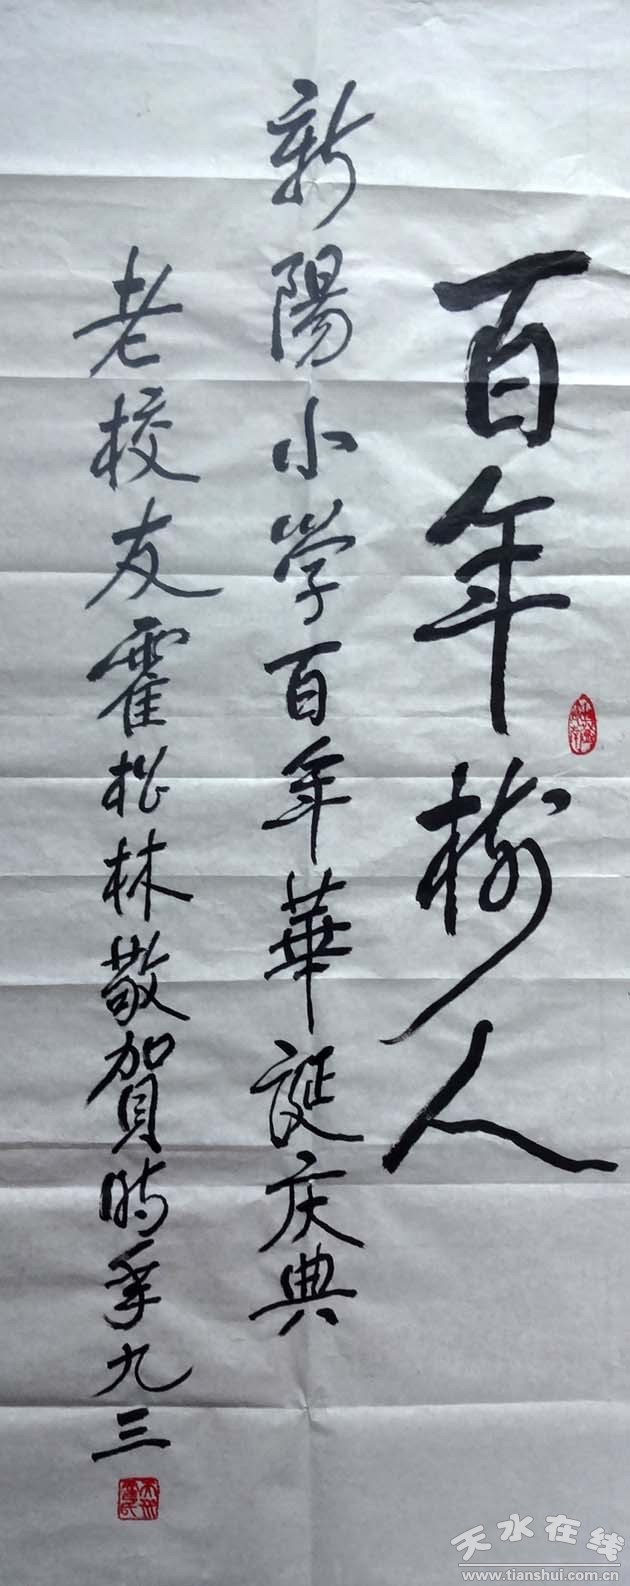 百年树人
新陽小学百年華誕庆典
老校友霍松林敬賀時年九三
天水在线
www.tianshui.com.cn